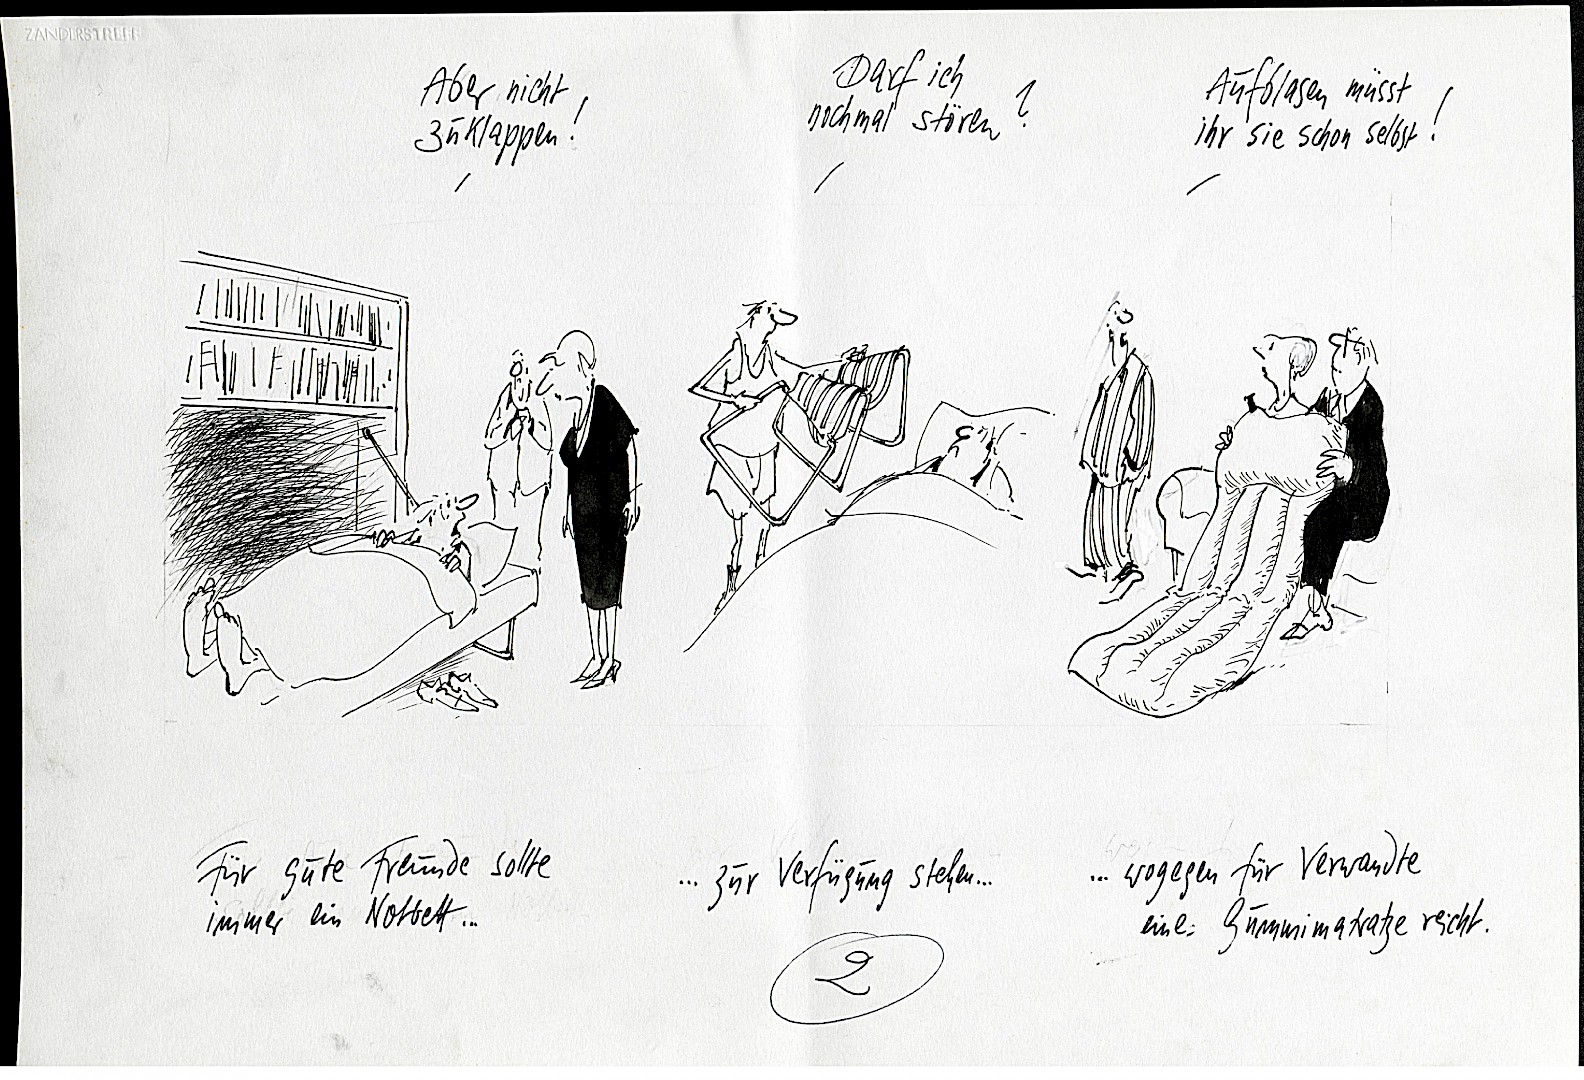 ZANDERSTREFF
Aber nicht
zuklappen!
Darf ich
nochmal stören?
Aufblasen müsst
ihr sie schon selbst!
Für gute Freunde sollte
immer ein Notbett...
... zur Verfügung stehen...
... wogegen für Verwandte
eine Gummimatratze reicht.
2